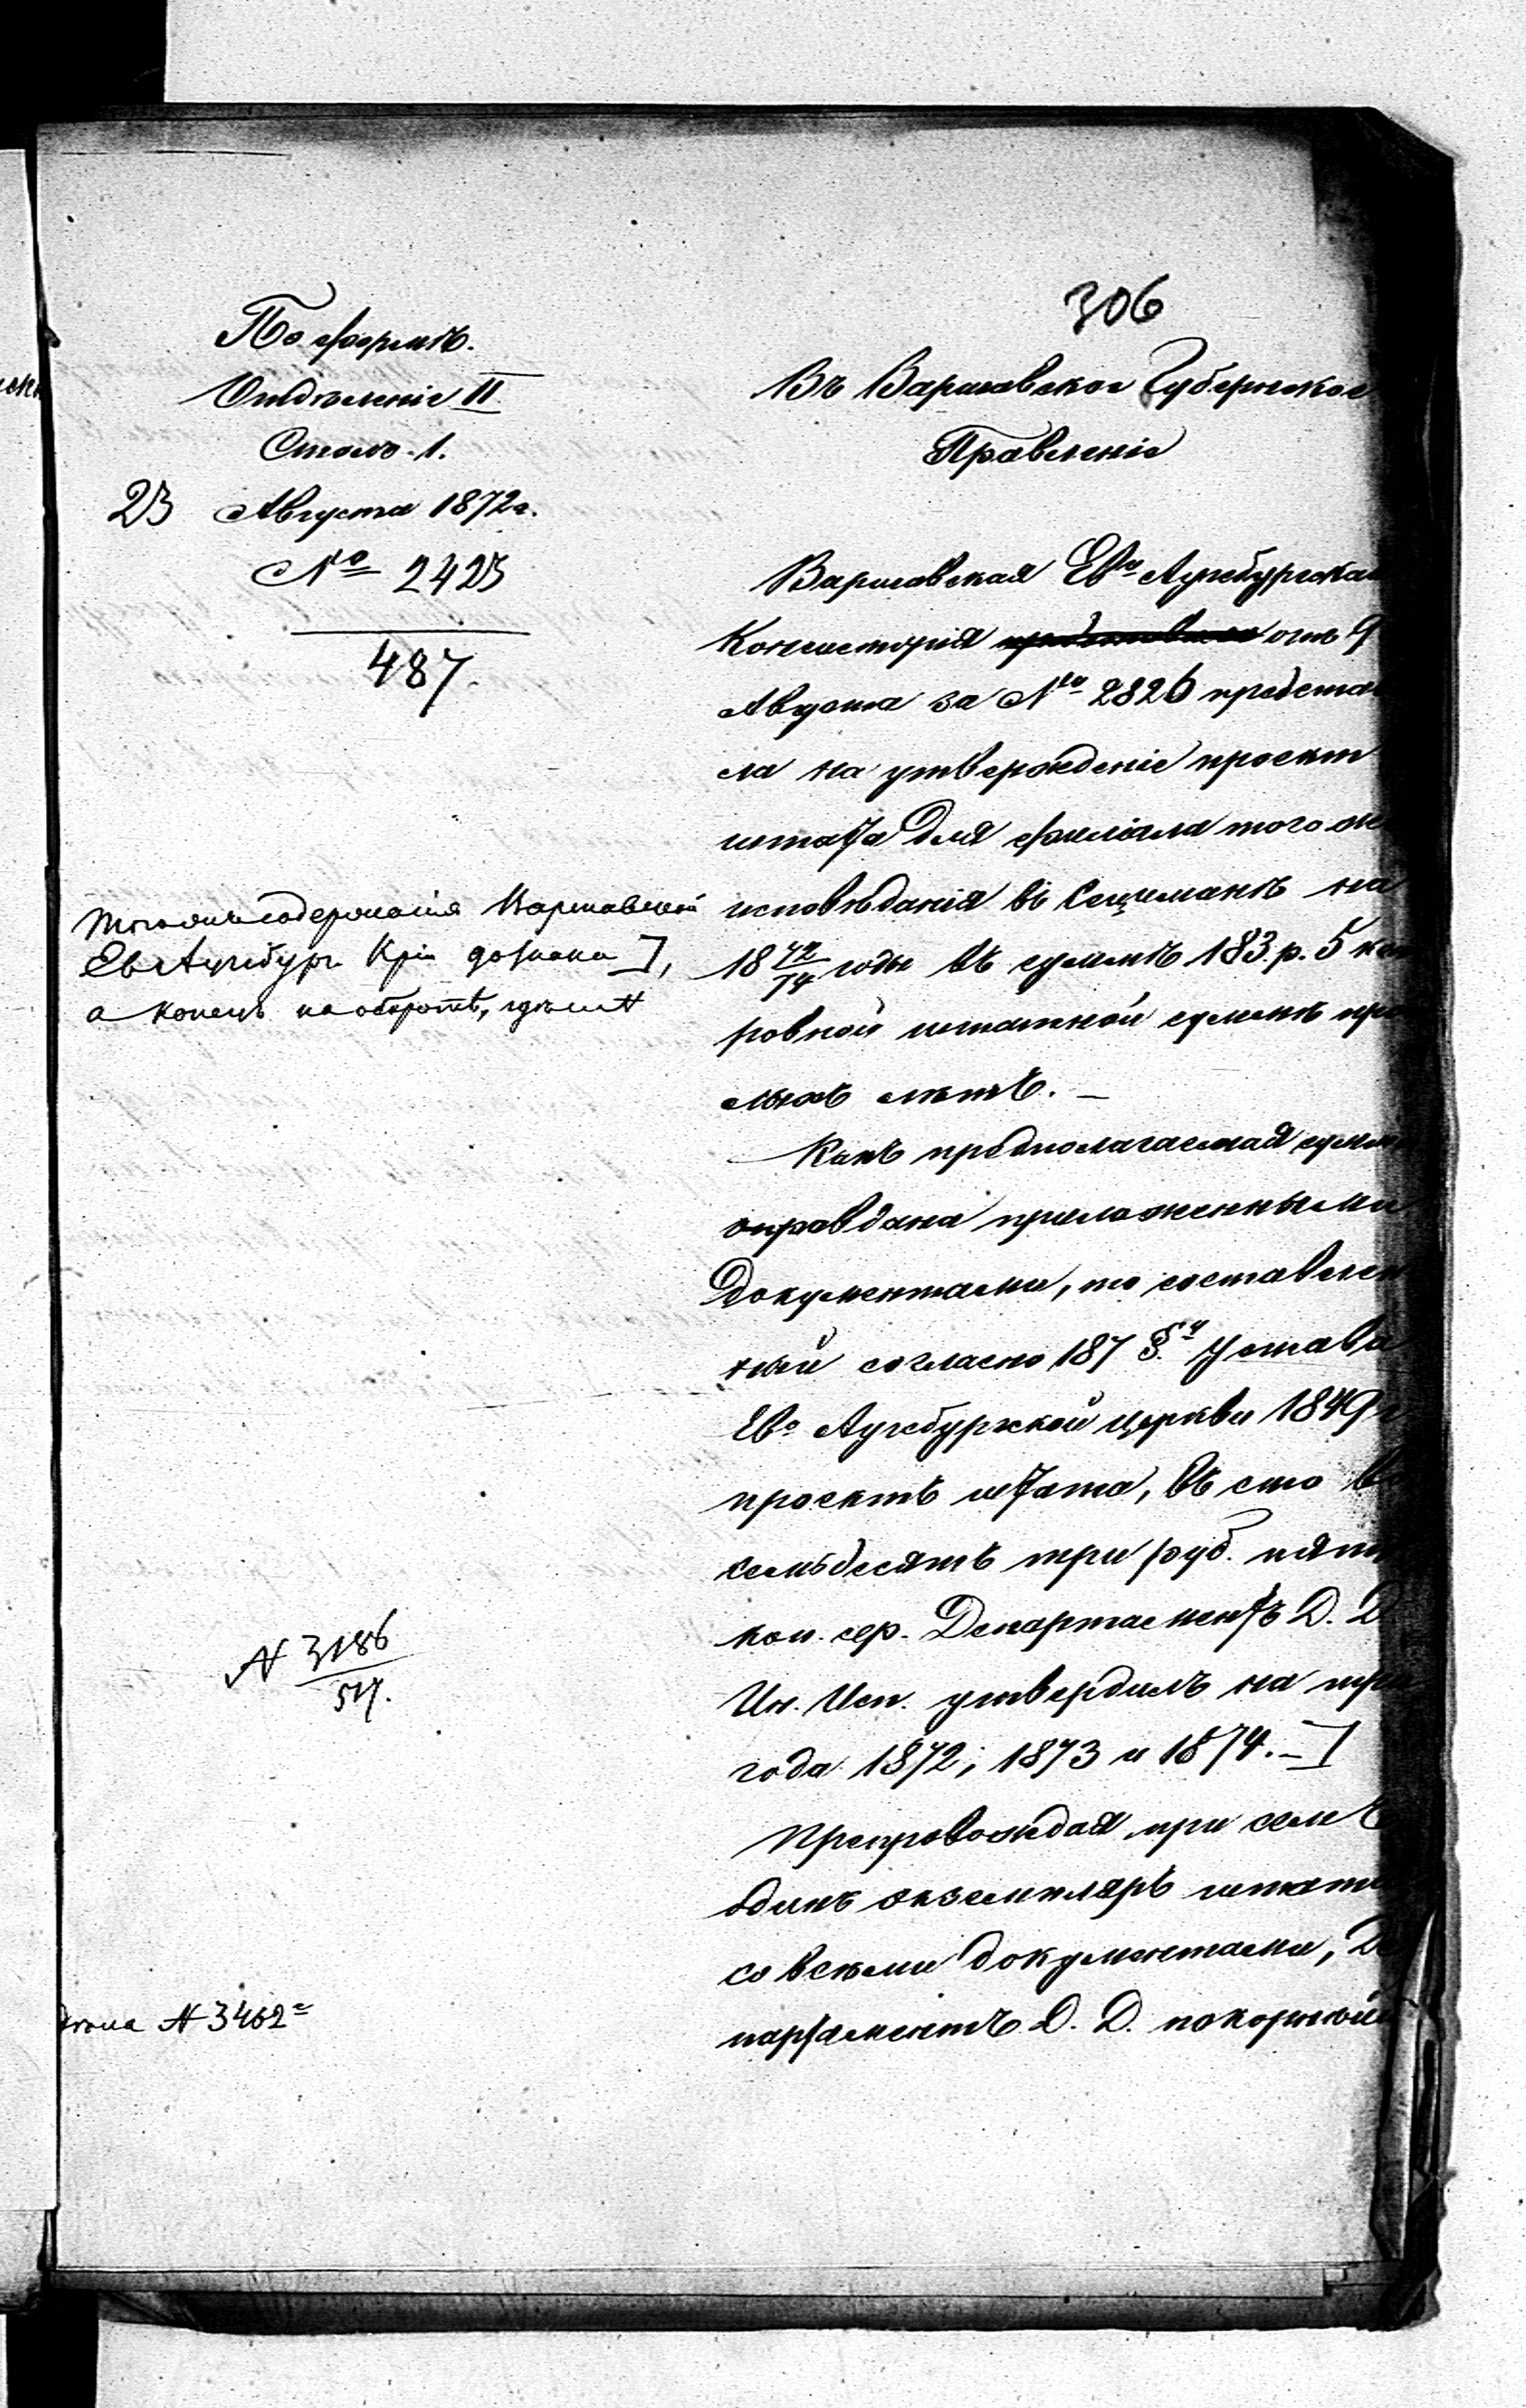 306
По формѣ.
Отдѣленіе II
Столъ 1.
23 Августа 1872 г.
№ 2423
487.
Въ Варшавское Губернское
Правленіе
Варшавская Ев. Аугсбургская
Консисторія отъ 9
Августа за № 2826 представи
ла на утвержденіе проектъ
штата для филіала того же
исповѣданія въ на
18 72/74 годы въ суммѣ 183 р. 5 коп
ровной штатной суммѣ про
лыхъ лѣтъ. —
Какъ предполагаемая сумма
оправдана приложенными
документами, то составлен
ный согласно 187 §. Устава
Ев. Аугсбургской церкви 1849 г
проектъ штата, въ сто во
семьдесятъ три руб. пять
коп. сер. Департаментъ Д. Д.
Ин. Исп. утвердилъ на три
года 1872, 1873 и 1874. — ]
Препровождая при семъ
одинъ экземпляръ штата
со всѣми документами, Де
партаментъ Д. Д. покорнѣй
того же содержанія Варшавской
Ев Аугсбург. Кріи до знака ],
а конецъ на оборотѣ,
N 3186
517.
N 3462